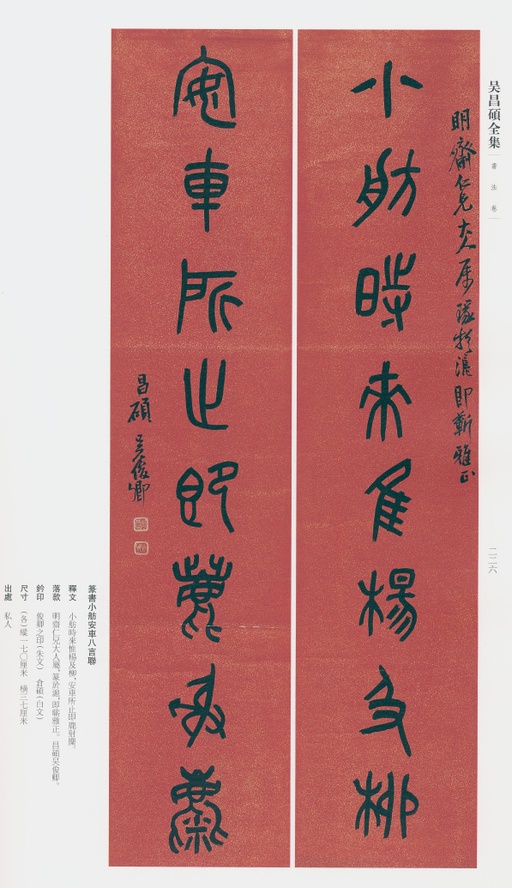 吴昌碩全集
書法卷
二二六
明齋仁兄大人屬篆於滬即蘄雅正
小舫時來隹楊及柳
安車所止即鹿射麋
昌碩吴俊卿
篆書小舫安車八言聯
釋文 小舫時來惟楊及柳，安車所止即鹿射麋。
落款 明齋仁兄大人屬，篆於滬，即蘄雅正。昌碩吴俊卿。
鈐印 俊卿之印（朱文） 倉碩（白文）
尺寸 （各）縱一七〇厘米 橫三七厘米
出處 私人